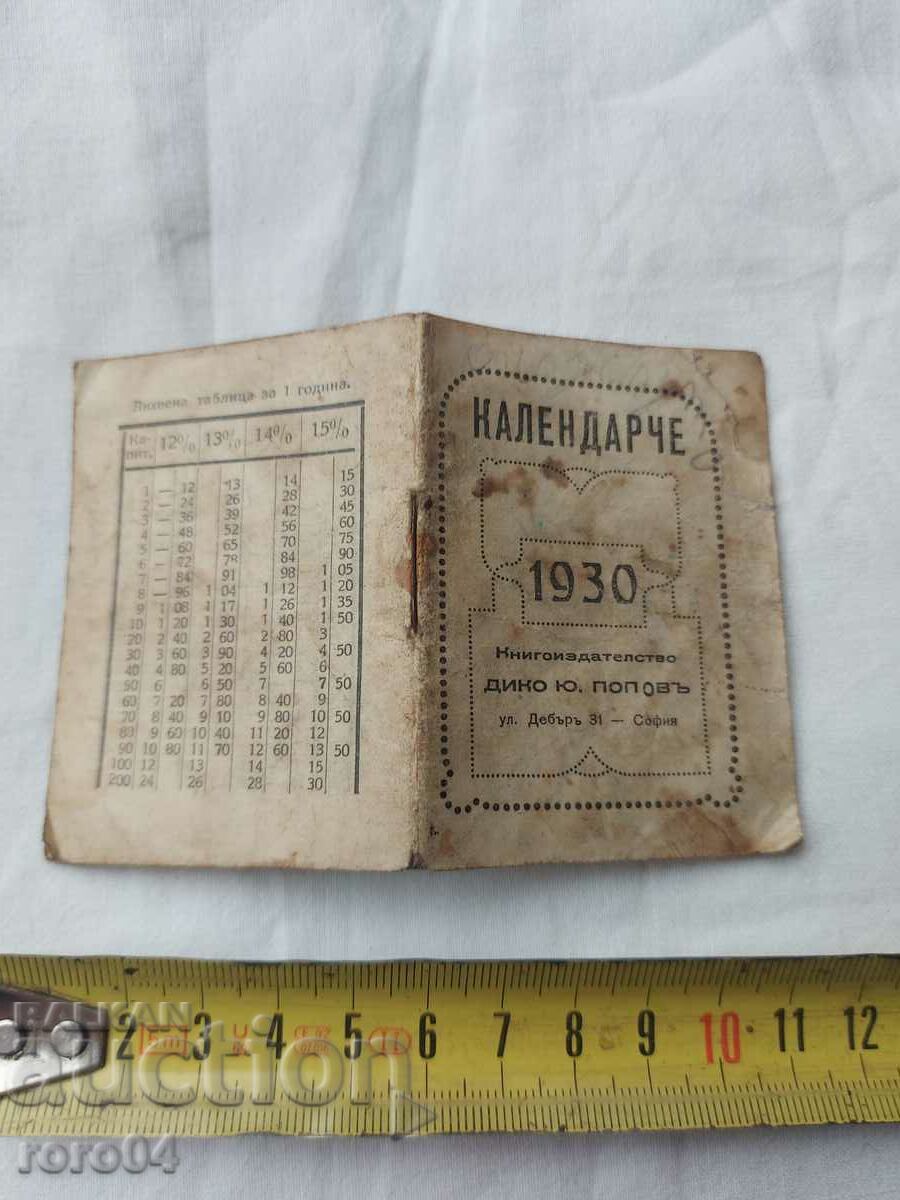 Лихвена таблица за 1 година.
Ка-пит. 12% 13% 14% 15%
1 — 12 13 14 15
2 — 24 26 28 30
3 — 36 39 42 45
4 — 48 52 56 60
5 — 60 65 70 75
6 — 72 78 84 90
7 — 84 91 98 1 05
8 — 96 1 04 1 12 1 20
9 1 08 1 17 1 26 1 35
10 1 20 1 30 1 40 1 50
20 2 40 2 60 2 80 3
30 3 60 3 90 4 20 4 50
40 4 80 5 20 5 60 6
50 6 6 50 7 7 50
60 7 20 7 80 8 40 9
70 8 40 9 10 9 80 10 50
80 9 60 10 40 11 20 12
90 10 80 11 70 12 60 13 50
100 12 13 14 15
200 24 26 28 30
КАЛЕНДАРЧЕ
1930
Книгоиздателство
ДИКО Ю. ПОПОВЪ
ул. Дебъръ 31 — София
2 3 4 5 6 7 8 9 10 11 12
BALKAN
auction
roro04